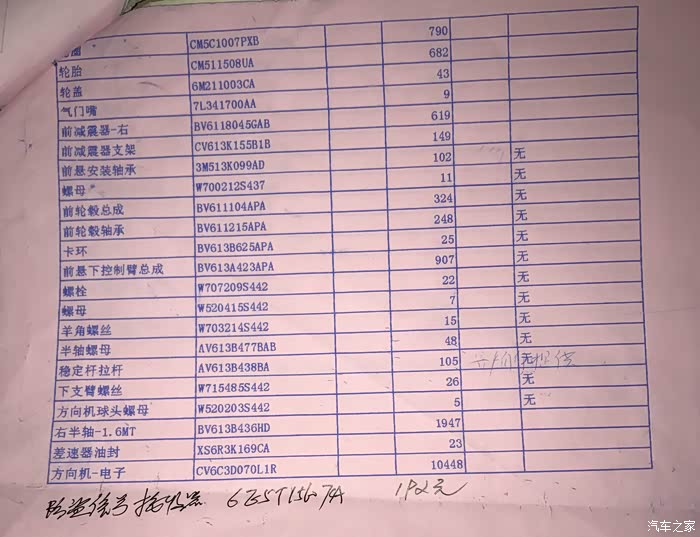 CM5C1007PXB 790
轮胎 CM511508UA 682
轮盖 6M211003CA 43
气门嘴 7L341700AA 9
前减震器-右 BV6118045GAB 619
前减震器支架 CV613K155B1B 149
前悬安装轴承 3M513K099AD 102 无
螺母 W700212S437 11 无
前轮毂总成 BV611104APA 324 无
前轮毂轴承 BV611215APA 248 无
卡环 BV613B625APA 25 无
前悬下控制臂总成 BV613A423APA 907 无
螺栓 W707209S442 22 无
螺母 W520415S442 7 无
羊角螺丝 W703214S442 15 无
半轴螺母 AV613B477BAB 48 无
稳定杆拉杆 AV613B438BA 105 无
下支臂螺丝 W715485S442 26 无
方向机球头螺母 W520203S442 5 无
右半轴-1.6MT BV613B436HD 1947
差速器油封 XS6R3K169CA 23
方向机-电子 CV6C3D070L1R 10448
防盗信号接收器 192元
汽车之家